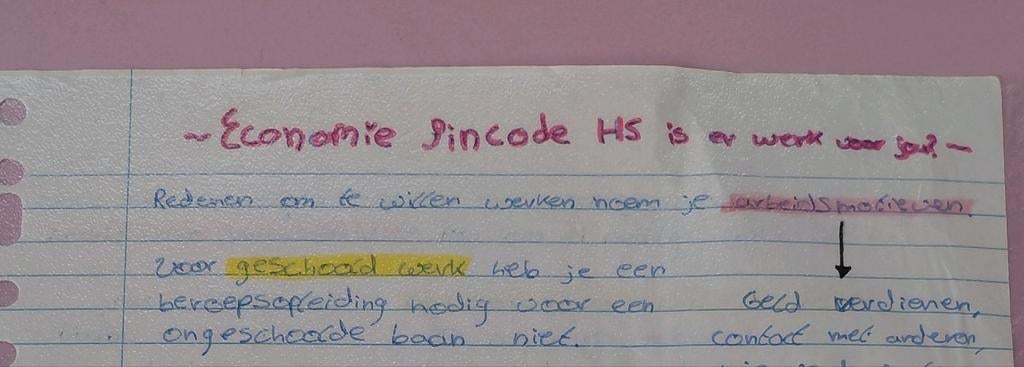 ~ Economie Pincode H5 is er werk voor jou? ~
Redenen om te willen werken noem je arbeidsmotieven.
Voor geschoold werk heb je een
beroepsopleiding nodig voor een
ongeschoolde baan niet.
Geld verdienen,
contact met anderen,